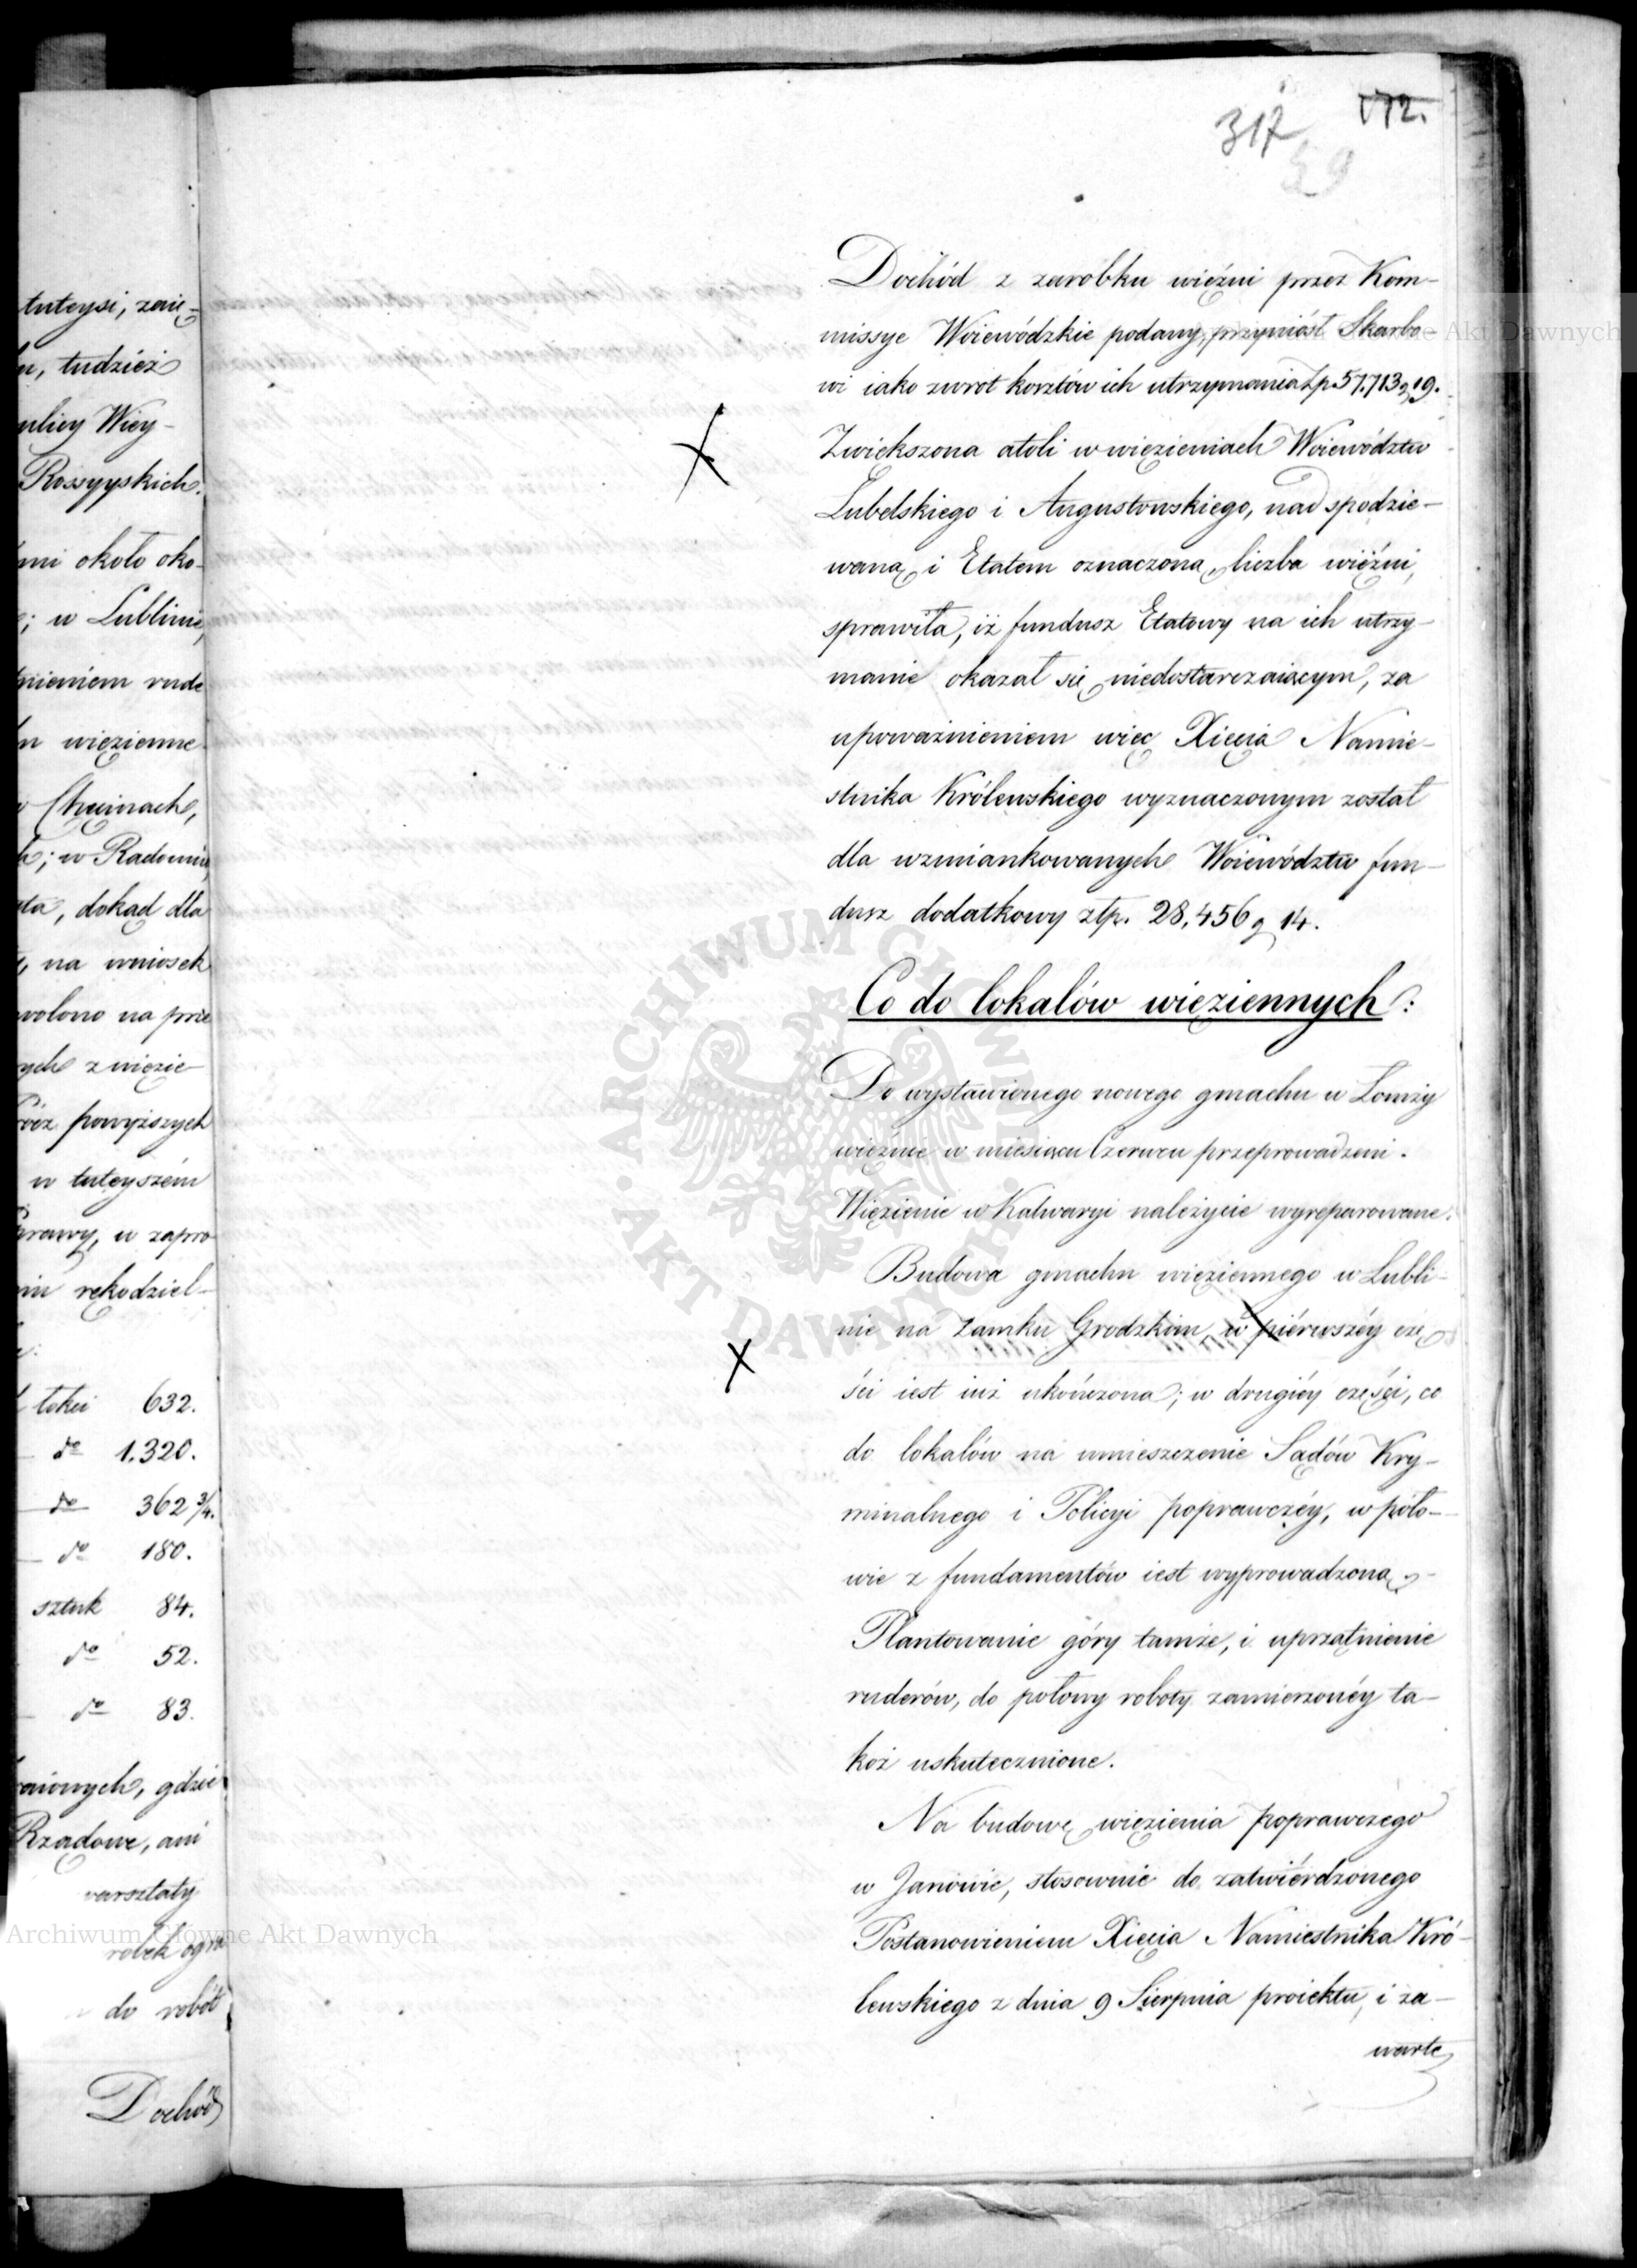 tuteysi, zaię-
tudzież
ulicy Wiey-
Rossyyskich.
około oko-
; w Lublinie,
więzienne
Chęcinach,
; w Radomiu,
dokąd dla
na wniosek
na prze
z więzie-
powyższych
w tuteyszém
w zapro
rękodziel-
łokci 632.
do 1.320.
do 362 3/4.
do 180.
sztuk 84.
do 52.
do 83.
gdzie
Rządowe, ani
warsztaty
do robót
Dochód
317 172.
59
Dochód z zarobku więźni przez Kom-
missye Woiewódzkie podany, przyniósł Skarbo-
wi iako zwrot kosztów ich utrzymania Zp. 57.713 g 19.
Zwiększona atoli w więzieniach Woiewództw
Lubelskiego i Augustowskiego, nad spodzie-
waną i Etatem oznaczoną, liczba więźni,
sprawiła, iż fundusz Etatowy na ich utrzy-
manie okazał się niedostarczaiącym, za
upoważnieniem więc Xięcia Namie-
stnika Królewskiego wyznaczonym został
dla wzmiankowanych Woiewództw fun-
dusz dodatkowy złp. 28,456 g 14.
Co do lokalów więziennych:
Do wystawionego nowego gmachu w Łomży
więźnie w miesiącu Czerwcu przeprowadzeni.
Więzienie w Kalwaryi należycie wyreparowane.
Budowa gmachu więziennego w Lubli-
nie na Zamku Grodzkim, w piérwszéy czę-
ści iest iuż ukończona; w drugiéy części, co
do lokalów na umieszczenie Sądów Kry-
minalnego i Policyi poprawczéy, w poło-
wie z fundamentów iest wyprowadzona,-
Plantowanie góry tamże, i uprzątnienie
ruderów, do połowy roboty zamierzonéy ta-
koż uskutecznione.
Na budowę więzienia poprawczego
w Janowie, stosownie do zatwiérdzonego
Postanowieniem Xięcia Namiestnika Kró-
lewskiego z dnia 9 Sierpnia proiektu, i za-
warte
ARCHIWUM GŁÓWNE AKT DAWNYCH
Archiwum Główne Akt Dawnych
Archiwum Główne Akt Dawnych